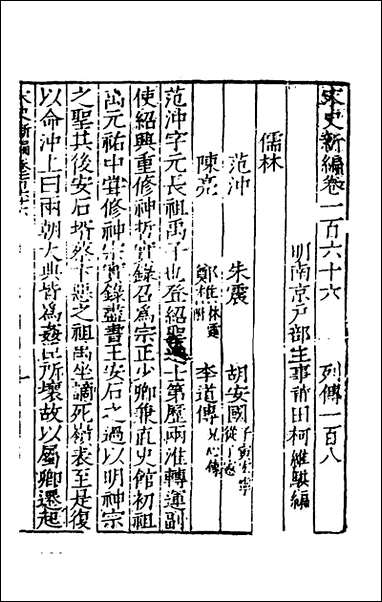 宋史新編卷一百六十六 列傳一百八
明南京戶部主事莆田柯維騏編
儒林
范沖 朱震 胡安國子寅宏寧從子憲
陳亮 鄭樵林霆附 李道傳兄心傳
范沖字元長祖禹子也登紹聖進士第歷兩淮轉運副
使紹興重修神哲實錄召為宗正少卿兼直史館初祖
禹元祐中嘗修神宗實錄盡書王安石之過以明神宗
之聖其後安石壻蔡卞惡之祖禹坐謫死嶺表至是復
以命沖上曰兩朝大典皆為姦臣所壞故以屬卿遷起
宋史新編卷一百六十六